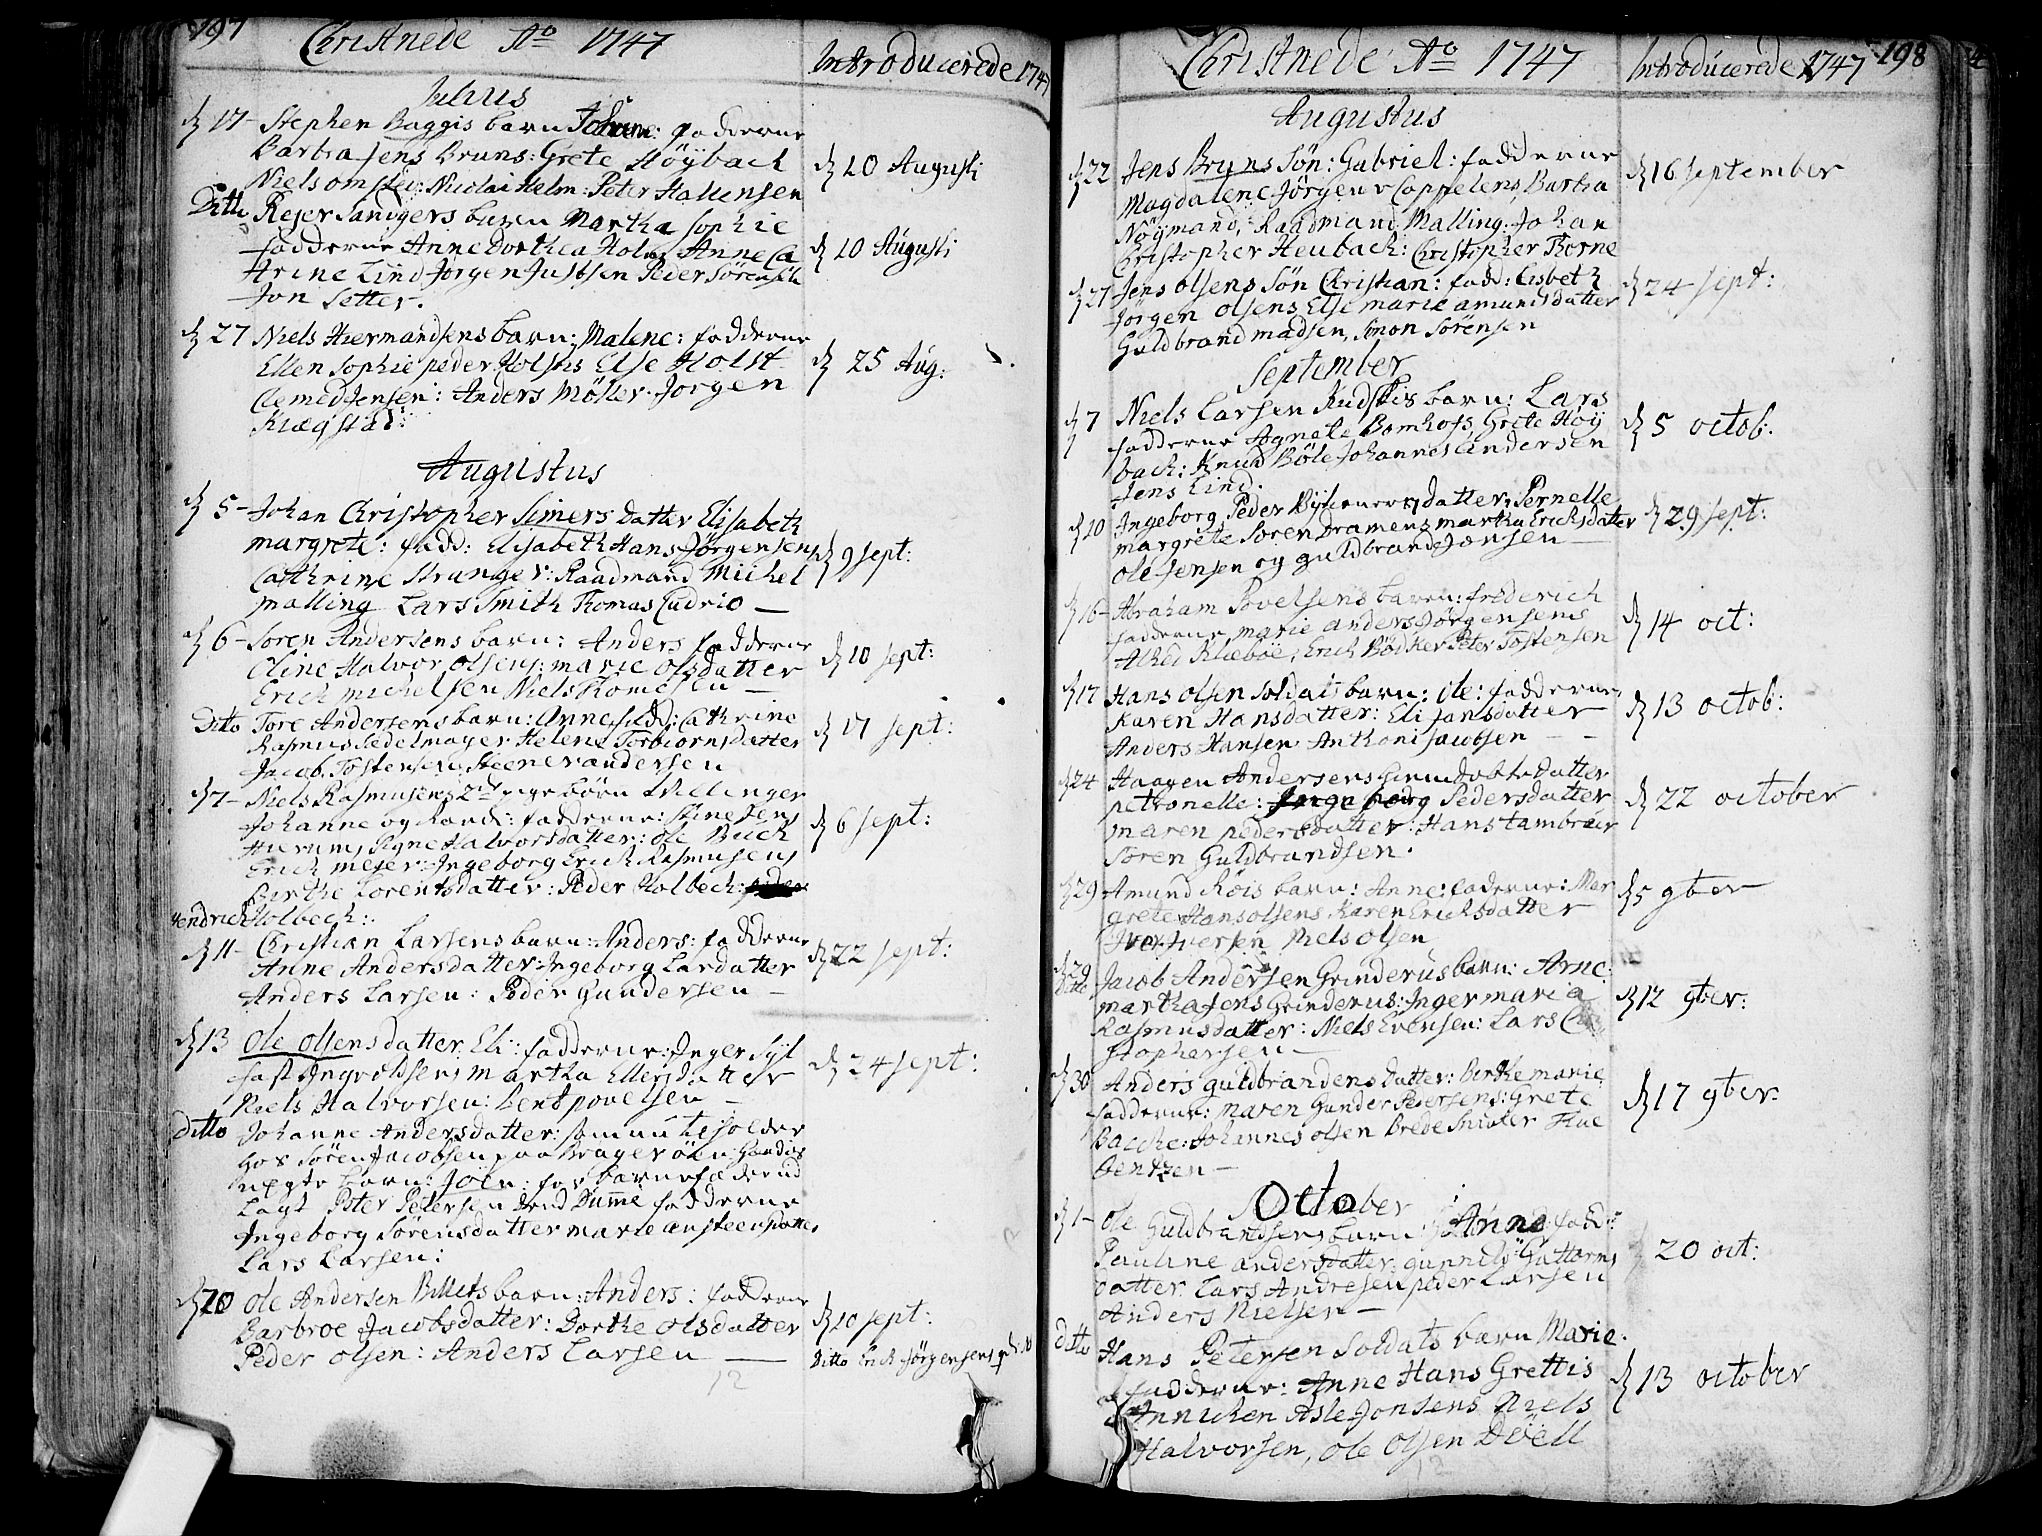 197
Christnede Ao 1747
Introducerede 1747
Julius
d 17 - Stephen Baggis barn Johane: fadderne
Barbra Jens Bruns: Grete Höybach
Niels omsted: Nicolai Helm: Peter Halvensen
d 20 Augusti
Ditto Rejer Sandgers barn Martha Sophie
fadderne Anne Dorthea Holm, Anne Ca
thrine Lind Jörgen Justsen Peder Sörensen
Jon Setter.
d 20 Augusti
d 27 Niels Hermandsens barn: Malene: fadderne
Ellen Sophie peder Holstis Else Holst
Clemed Jensen: Anders Möller. Jorgen
Klægstad:
d 25 Aug:
Augustus
d 5 - Johan Christopher Simers datter Elisabeth
margrete: fadd: Elisabeth Hans Jörgensens
Cathrine Strunger: Raadmand Michel
malling Lars Smith Thomas Ludrio —
d 9 sept:
d 6 - Soren Andersens barn: Anders fadderne
Oline Halvor olsens: marie olsdatter
Erich michelsen Niels Thomesen —
d 10 sept:
Dito Tore Andersens barn: Anne fadd: Cathrine
Rasmus Sedelmayer Helene Torbiornsdatter
Jacob Tostensen Steener andersen
d 17 sept:
d 7 - Niels Rasmusens 2de pigebörn tvelinger
Johanne og Randi: fadderne: Stine Jens
Hurums Signe Halvorsdatter: ole Buch
Erich mejer: Ingeborg Erich Rasmusens
Birthe Lorentsdatter: Peder Holbech:
Hendrich Holbech:
d 6 sept:
d 11 - Christian Larsens barn: Anders: fadderne
Anne Andersdatter: Ingeborg Larsdatter
Anders Larsen: Peder Gundersen —
d 22 sept:
d 13 ole olsens datter Eli: fadderne: Inger Syl
fast Ingvoldsens martha Ellersdatter
Niels Halvorsen: bent povelsen —
d 24 sept:
ditto Johanne Andersdatter: som
hos Sören Jacobsen paa Brageröen: Handes
uægte barn: Joen: for barnefader ud
lagt Peter Petersen dend Dumme fadderne
Ingeborg Sörensdatter marie ansteensdatter
Lars Larsen:
d 20 ole Andersen Billets barn: Anders: fadderne
Barbroe Jacobsdatter: Dorthe olsdatter
Peder olsen: Anders Larsen —
d 10 sept:
Ditto Erich Jörgensens
12
198
Christnede Ao 1747
Introducerede 1747
Augustus
d 22 Jens Bruns Sön: Gabriel: fadderne
Magdalene Jörgen v Cappelens, Barbra
Nöymand, Raadmand Malling: Johan
Christopher Heubach: Christopher Borne
d 16 september
d 27 Jens olsens Sön Christian: fadd: Lisbeth
Jörgen olsens Else marie amundsdatter
Guldbrand madsen, Simon Sörensen
d 24 sept:
September
d 7 Niels Larsen Rudskis barn: Lars
fadderne Agnete Bomhofs, Grete Höy
bach: Knud Böle Johannes Andersen
Jens Lind.
d 5 octob.
d 10 Ingeborg, Peder datter, Pernelle
margrete Soren Dramens martha Erichsdatter
ole Jensen og guldbrand Jansen —
d 29 sept:
d 16 - Abraham Povelsens barn: friderich
fadderne marie anders Jörgensens
Alhed Klæboe, Erich Bödker Peter Tostensen
d 14 oct:
d 17 Hans olsen soldats barn: ole: fadderne,
Karen Hansdatter: Eli Jansdatter
Anders Hansen Anthoni Jacobsen — -
d 13 octob:
d 24 Haagen Andersens datter
petronelle: Ingeborg Pedersdatter
maren pedersdatter: Hans tambour
Soren Guldbrandsen.
d 22 october
d 29 Amund Röis barn: Anne: faderne: Mar
grete Hans olsens Karen Erichsdatter
Iver Iversen Niels olsen
d 5 9ber
d 29 Ditto Jacob Andersen Grinderus barn: Arne:
martha Jens Grinderus: Inger maria
Rasmusdatter: Niels Evensen: Lars Chri
stophersen —
d 12 9ber:
d 30 Anders guldbrandens datter: Berthe marie
fadderne: maren Gunder Pedersens: Grete
Bache: Johannes olsen Brede Snicker Hue
Jentzen —
d 17 9ber:
October
d 1 - ole Guldbrandsens barn: Anne: fadd:
Pauline andersdatter, gunnild Guttorms
datter Lars Andresen peder Larsen
Anders Nielsen —
d 20 oct:
ditto Hans Petersen Soldats barn Marie.
fadderne: Anne Hans Grettis
Annichen Asle Jonsens Niels
Halvorsen, ole olsen Döell
d 13 october
12